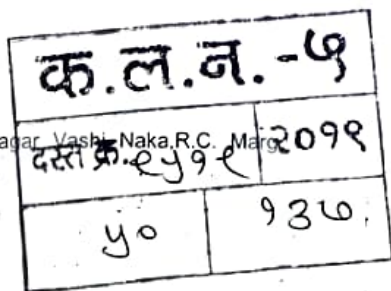 क.ल.न. -५
agar, Vashi Naka,R.C. Marg
दस्त क्र. ९५१९ २०१९
५० १३७.